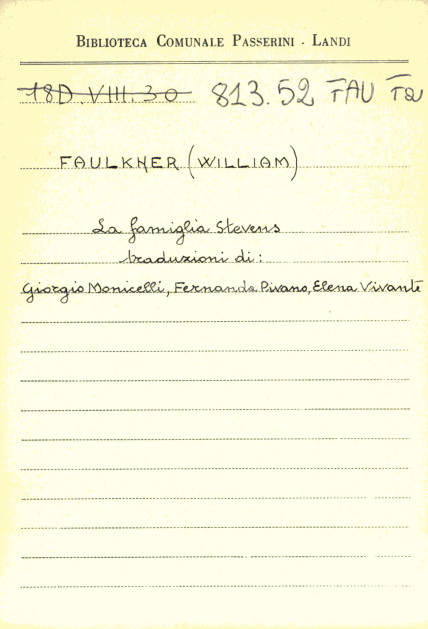 BIBLIOTECA COMUNALE PASSERINI - LANDI
18D.VIII.30 813.52 FAU
FAULKNER (WILLIAM)
La famiglia Stevens
traduzioni di:
Giorgio Monicelli, Fernanda Pivano, Elena Vivante